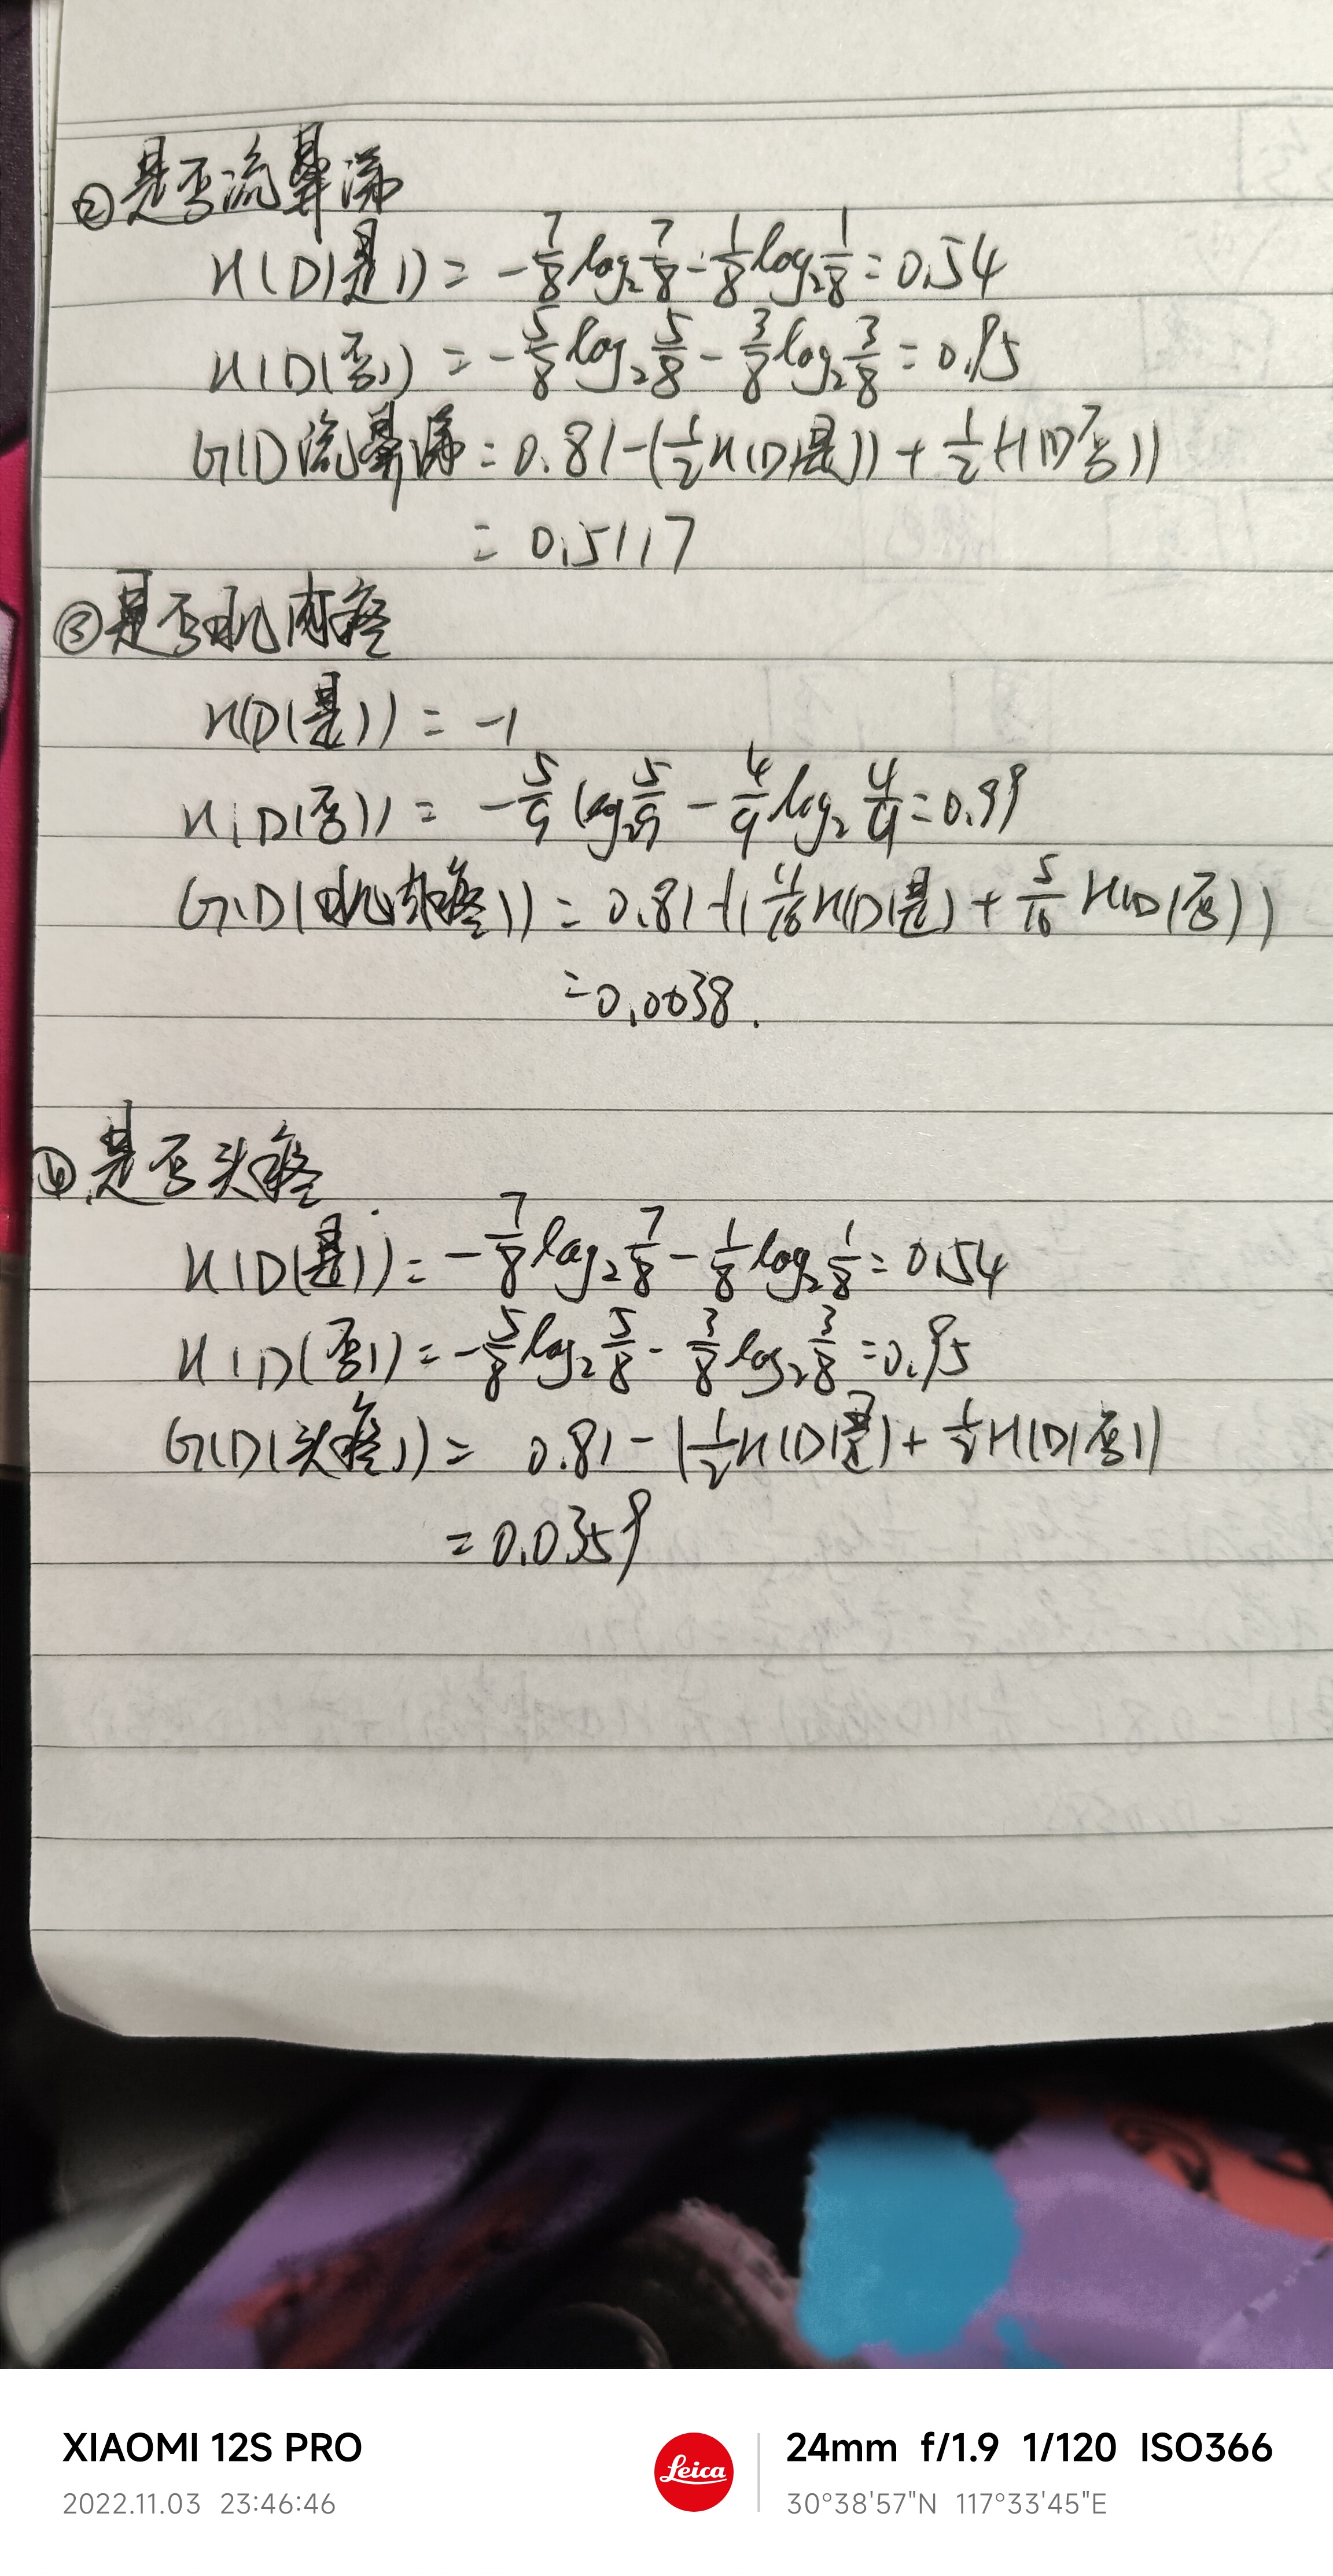 ②是否流鼻涕
H(D(是)) = -7/8 log₂ 7/8 - 1/8 log₂ 1/8 = 0.54
H(D(否)) = -5/8 log₂ 5/8 - 3/8 log₂ 3/8 = 0.95
G(D流鼻涕 = 0.81-(1/2 H(D(是)) + 1/2 H(D否))
= 0.5117
③是否肌肉疼
H(D(是)) = -1
H(D(否)) = -5/9 log₂ 5/9 - 4/9 log₂ 4/9 = 0.99
G(D(肌肉疼)) = 0.81-(4/16 H(D(是) + 5/16 H(D(否))
=0.0038.
④是否头疼
H(D(是)) = -7/8 log₂ 7/8 - 1/8 log₂ 1/8 = 0.54
H(D(否)) = -5/8 log₂ 5/8 - 3/8 log₂ 3/8 = 0.95
G(D(头疼)) = 0.81 - (1/2 H(D(是) + 1/2 H(D(否))
= 0.0359
XIAOMI 12S PRO
2022.11.03 23:46:46
Leica
24mm f/1.9 1/120 ISO366
30°38'57"N 117°33'45"E